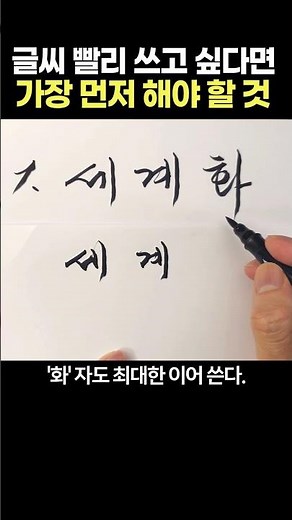 글씨 빨리 쓰고 싶다면
가장 먼저 해야 할 것
1. 세계화
세계
'화' 자도 최대한 이어 쓴다.